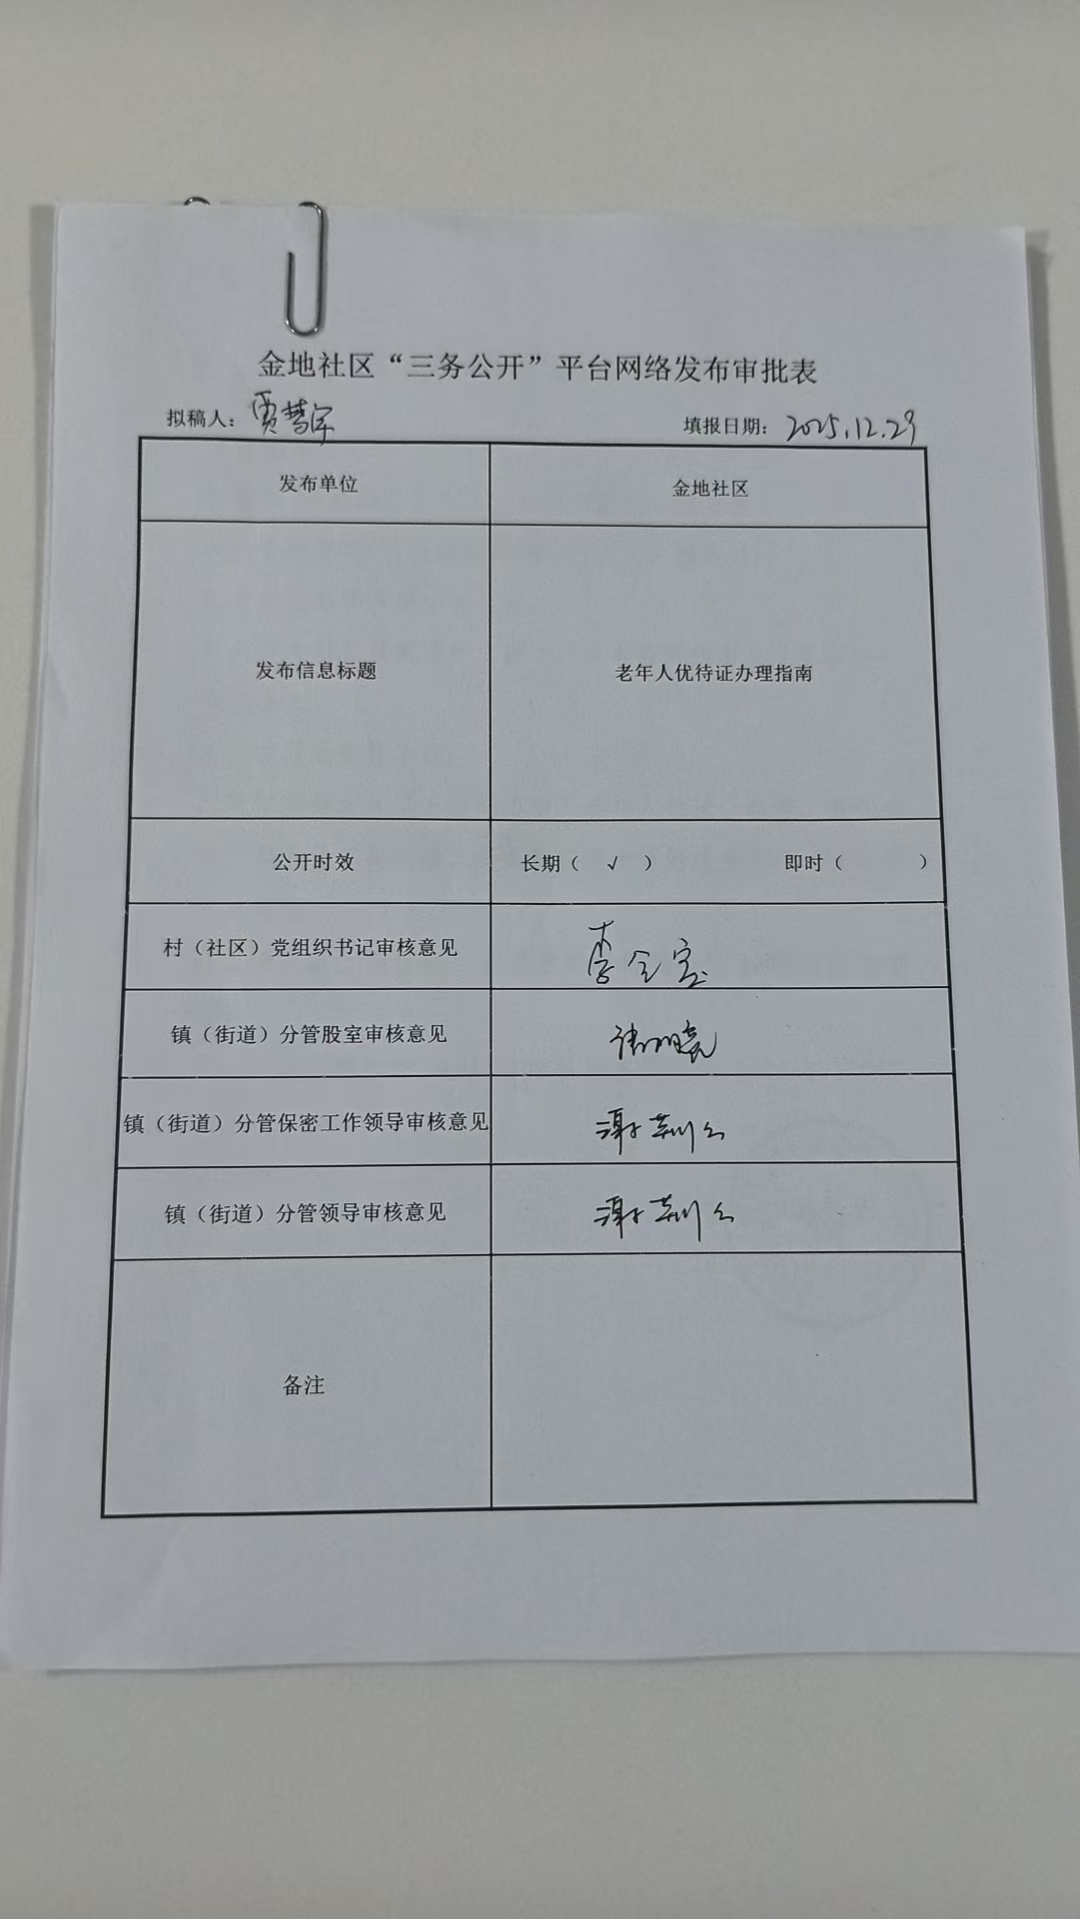 金地社区“三务公开”平台网络发布审批表
拟稿人： 填报日期：2025.12.29
发布单位 金地社区
发布信息标题 老年人优待证办理指南
公开时效 长期（ √ ） 即时（ ）
村（社区）党组织书记审核意见
镇（街道）分管股室审核意见
镇（街道）分管保密工作领导审核意见
镇（街道）分管领导审核意见
备注